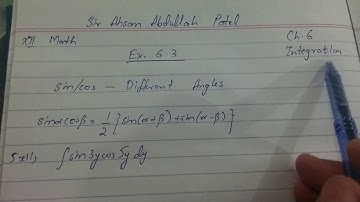 Sir Ahsan Abdullah Patel
XII Math
Ch. 6
Ex. 6.3
Integration
sin/cos – Different Angles
sinαcosβ = 1/2 {sin(α+β) + sin(α-β)}
5xii) ∫sin3ycos5ydy